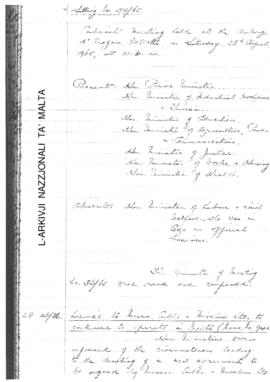 Sitting No. 34/65.
Cabinet meeting held at the Auberge
d'Aragon, Valletta on Saturday, 28th August,
1965, at 10.
Present: Hon. Prime Minister.
Hon. Minister of Industrial Development
& Tourism.
Hon. Minister of Education.
Hon. Minister of Agriculture, Power
& Communications.
Hon. Minister of Justice.
Hon. Minister of Works & Housing.
Hon. Minister of Health.
Absent: Hon. Minister of Labour & Social
Welfare who was on
official
business.
The minutes of Meeting
No. 33/65 were read and confirmed.
Licence to Messrs. Cable & Wireless Ltd., to
continue to operate in Malta
Hon. Ministers were
informed of the circumstances leading
to the drafting of a new agreement to
be signed by Messrs. Cable & Wireless Ltd.
L-ARKIVJI NAZZJONALI TA' MALTA